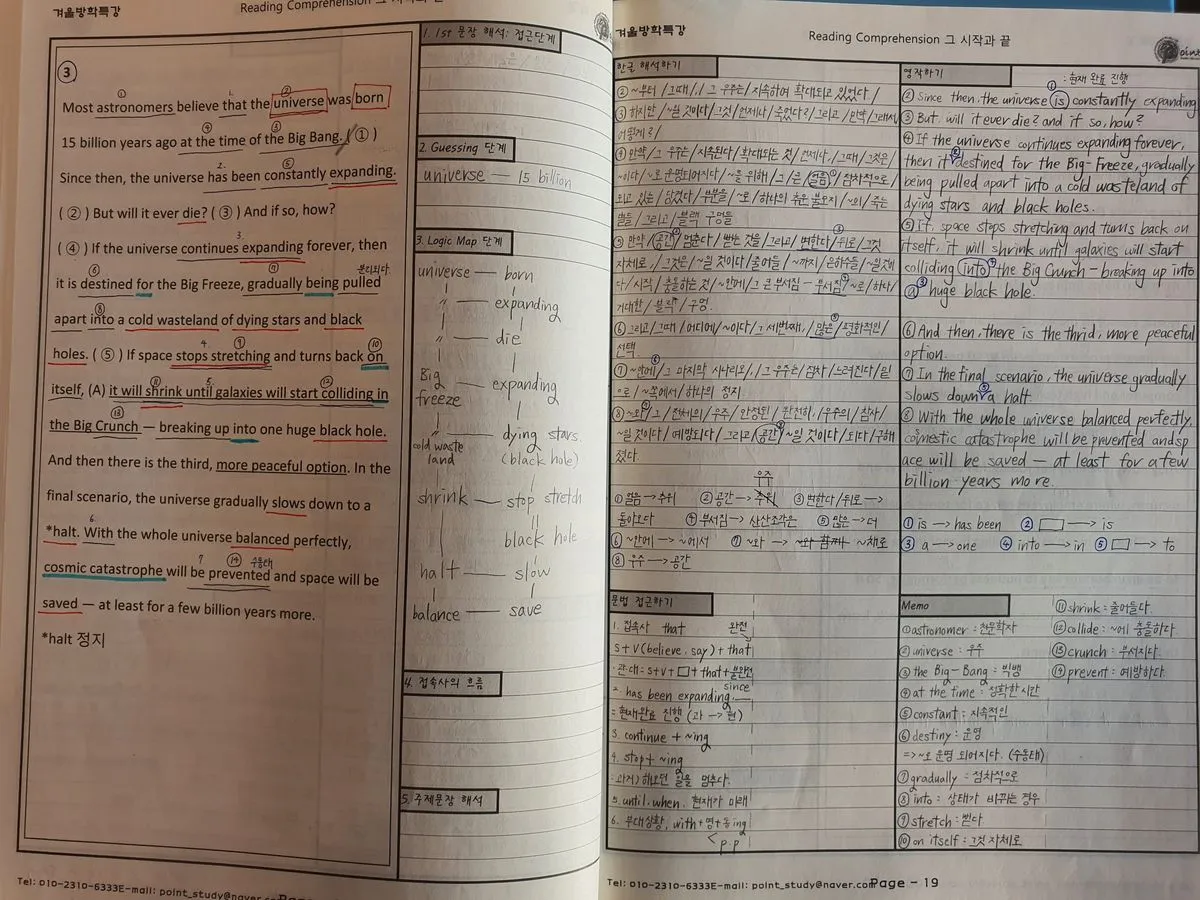 겨울방학특강
Reading Comprehension 그 시작과 끝
③
Most astronomers believe that the universe was born
15 billion years ago at the time of the Big Bang. ( ① )
Since then, the universe has been constantly expanding.
( ② ) But will it ever die? ( ③ ) And if so, how?
( ④ ) If the universe continues expanding forever, then
분리되다.
it is destined for the Big Freeze, gradually being pulled
apart into a cold wasteland of dying stars and black
holes. ( ⑤ ) If space stops stretching and turns back on
itself, (A) it will shrink until galaxies will start colliding in
the Big Crunch — breaking up into one huge black hole.
And then there is the third, more peaceful option. In the
final scenario, the universe gradually slows down to a
*halt. With the whole universe balanced perfectly,
수동태
cosmic catastrophe will be prevented and space will be
saved — at least for a few billion years more.
*halt 정지
1. 1st 문장 해석: 접근단계
2. Guessing 단계
universe — 15 billion
3. Logic Map 단계
universe — born
〃 — expanding
〃 — die
Big freeze — expanding
〃 — dying stars
cold waste land (black hole)
shrink — stop stretch
black hole
halt — slow
balance — save
4. 접속사의 흐름
5. 주제문장 해석
Tel: 010-2310-6333E-mail: point_study@naver.com
겨울방학특강
Reading Comprehension 그 시작과 끝
한글 해석하기
② ~부터 / 그때 / , / 그 우주는 / 지속하여 확대되고 있었다 /
③ 하지만 / ~일 것이다 / 그것 / 언제나 / 죽었다? / 그리고 / 만약 / 그래서
어떻게? /
④ 만약 / 그 우주는 / 지속된다 / 확대되는 것 / 언제나, / 그때 / 그것은
~이다 / ~로 운명되어지다 / ~을 위해 / 그 / 큰 / 얼음① / 점차적으로 /
되고 있는 / 당겼다 / 부분을 / ~로 / 하나의 추운 불모지 / ~의 / 죽는
별들 / 그리고 / 블랙 구멍을
⑤ 만약 / 공간② / 멈춘다 / 뻗는 것을 / 그리고 / 변한다 / 뒤로 / 그것
자체로, / 그것은 / ~일 것이다 / 줄어들 / ~까지 / 은하수들 / ~일 것이
다 / 시작 / 충돌하는 것 / ~안에 / 그 큰 부서짐 — 부서짐 / ~로 / 하나
거대한 / 블랙 / 구멍.
⑥ 그리고 / 그때 / 어디에 / ~이다 / 그 세번째, / 많은 / 평화적인 /
선택.
⑦ ~안에 / 그 마지막 시나리오, / 그 우주는 / 점차 / 느려진다 / 밑
으로 / ~쪽에서 / 하나의 정지
⑧ ~와 / 그 / 전체의 / 우주 / 안정된 / 완전히, / 우주의 / 참사 /
~일 것이다 / 예방되다 / 그리고 / 공간 / ~일 것이다 / 되다 / 구해
졌다.
우주
① 얼음 → 추위 ② 공간 → 우주 ③ 변한다 / 뒤로 →
돌아오다 ④ 부서짐 → 산산조각은 ⑤ 많은 → 더
⑥ ~안에 → ~에서 ⑦ ~와 → ~와 함께 ~채로
⑧ 우주 → 공간
영작하기
: 현재 완료 진행
② Since then, the universe is constantly expanding
③ But, will it ever die? and if so, how?
④ If the universe continues expanding forever,
then it destined for the Big-Freeze, gradually
being pulled apart into a cold wasteland of
dying stars and black holes.
⑤ If, space stops stretching and turns back on
itself, it will shrink until galaxies will start
colliding into the Big Crunch — breaking up into
a huge black hole.
⑥ And then, there is the thrid, more peaceful
option.
⑦ In the final scenario, the universe gradually
slows down a halt
⑧ With the whole universe balanced perfectly,
comestic catastrophe will be prevented andsp
ace will be saved — at least for a few
billion years more.
① is → has been ② □ → is
③ a → one ④ into → in ⑤ □ → to
문법 접근하기
1. 접속사 that 완전
S+V(believe, say) + that
· 관대: S+V+□+that+불완전
2. has been expanding since
= 현재완료 진행 (과 → 현)
3. continue + ~ing
4. stop + ~ing
: 과거) 해오던 일을 멈추다.
5. until, when, 현재가 미래
6. 부대상황, with + 명 + 동ing
< p.p
Memo
① astronomer : 천문학자
② universe : 우주
③ the Big-Bang : 빅뱅
④ at the time : 정확한 시간
⑤ constant : 지속적인
⑥ destiny : 운명
=> ~로 운명 되어지다. (수동태)
⑦ gradually : 점차적으로
⑧ into : 상태가 바뀌는 경우
⑨ stretch : 뻗다
⑩ on itself : 그것 자체로
⑪ shrink : 줄어들다.
⑫ collide : ~에 충돌하다.
⑬ crunch : 부서지다.
⑭ prevent : 예방하다.
Tel: 010-2310-6333E-mail: point_study@naver.com
Page - 19